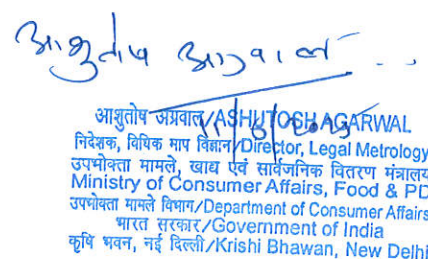 आशुतोष अग्रवाल
आशुतोष अग्रवाल/ASHUTOSH AGARWAL
निदेशक, विधिक माप विज्ञान/Director, Legal Metrology
उपभोक्ता मामले, खाद्य एवं सार्वजनिक वितरण मंत्रालय
Ministry of Consumer Affairs, Food & PD
उपभोक्ता मामले विभाग/Department of Consumer Affairs
भारत सरकार/Government of India
कृषि भवन, नई दिल्ली/Krishi Bhawan, New Delhi